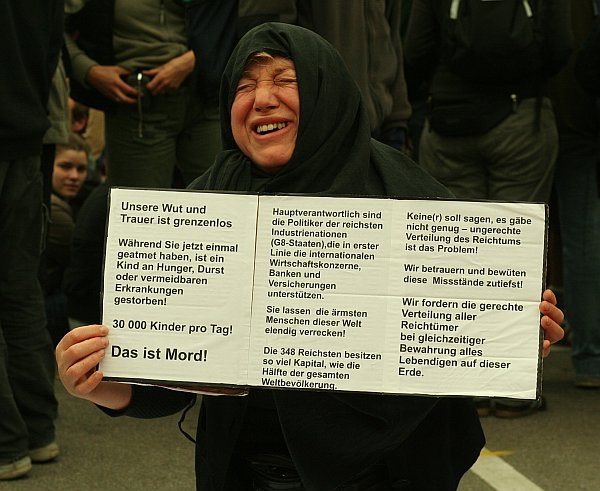 Unsere Wut und
Trauer ist grenzenlos
Während Sie jetzt einmal
geatmet haben, ist ein
Kind an Hunger, Durst
oder vermeidbaren
Erkrankungen
gestorben!
30 000 Kinder pro Tag!
Das ist Mord!
Hauptverantwortlich sind
die Politiker der reichsten
Industrienationen
(G8-Staaten),die in erster
Linie die internationalen
Wirtschaftskonzerne,
Banken und
Versicherungen
unterstützen.
Sie lassen die ärmsten
Menschen dieser Welt
elendig verrecken!
Die 348 Reichsten besitzen
so viel Kapital, wie die
Hälfte der gesamten
Weltbevölkerung.
Keine(r) soll sagen, es gäbe
nicht genug – ungerechte
Verteilung des Reichtums
ist das Problem!
Wir betrauern und bewüten
diese Missstände zutiefst!
Wir fordern die gerechte
Verteilung aller
Reichtümer
bei gleichzeitiger
Bewahrung alles
Lebendigen auf dieser
Erde.